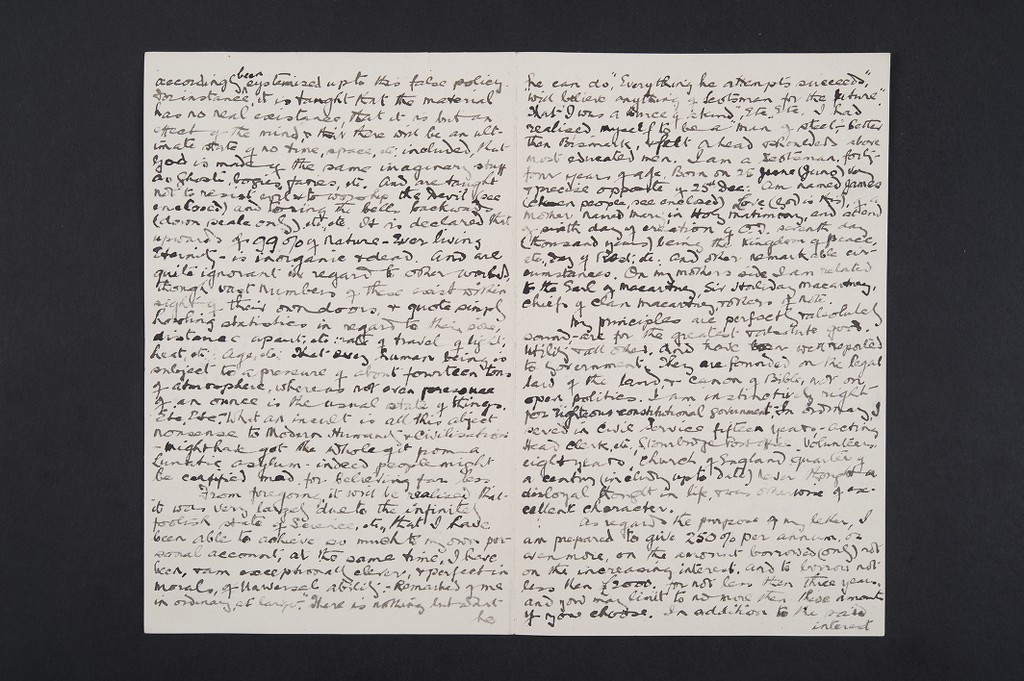 accordingly been systemised up to this false policy.
For instance, it is taught that the material
has no real existance, that it is but an
effect of the mind, & that there will be an ult-
imate state of no time, space, etc; included, that
God is made of the same imaginery stuff
as Ghosts, bogies, fairies, etc. And are taught
not to resist evil & to worship the Devil (see
enclosed) and toning the bells backwards
(down scale only), etc, etc. It is declared that
upwards of 99% of Nature - Ever living
Eternity - is inorganic & dead. And are
quite ignorant in regard to other worlds,
though vast numbers of these exist within
sight of their own doors, & quote simply
howling statistics in regard to their size,
distance apart, etc; rate of travel of light,
heat, etc; Age, etc. That every human being is
subject to a pressure of about fourteen tons
of atmosphere, whereas not even pressure
of an ounce is the usual state of things.
Etc. Etc. What an insult is all this abject
nonsense to Modern Humanity & Civilisation
- might have got the whole of it from a
Lunatic asylum - indeed people might
be certified mad for believing far less
From foregoing it will be realised that
it was very largely due to the infinitely
foolish state of Science, etc, that I have
been able to achieve so much to my own per-
sonal account, at the same time, I have
been, & am exceptionally clever, & perfect in
morals, & of Universal ability. - Remarked of me
in ordinary, at large, "There is nothing but what
he
he can do," "Everything he attempts succeeds,"
"Will believe anything of Scotsman for the future"
"That I was a Prince of his kind", Etc, Etc. I had
realised myself to be a "man of steel," better
than Bismark, & felt a head & shoulders above
most educated men. I am a Scotsman, forty-
four years of age, Born on 25 June (June) day
& precise opposite of 25th Dec: Am named James
(chosen people, see enclosed) Love (God is love), of a
mother named mary in Holy matrimony, and at end
of sixth day of creation of O.T. seventh day
(thousand years) being the Kingdom of Peace,
etc, Day of Rest, etc: And other remarkable cir-
cumstances. On my mothers side I am related
to the Earl of Macartney, Sir Holiday Macartney,
chiefs of clan Macartney, & others of note.
My principles are perfectly & absolutely
sound - are for the greatest & absolute good,
utility & all other. And have been well reported
to Government. They are founded on the legal
law of the land & canon of Bible, not on
open politics. I am instinctively right
for righteous constitutional Government. In ordinary I
served in Civil Service fifteen years - acting
Head Clerk, etc, Stourbridge Post-office. Volunteers,
eight years, Church of England quarter of
a century (including up to date) never thought a
disloyal thought in life, & was otherwise of ex-
cellent character.
As regards the purpose of my letter, I
am prepared to give 250% per annum, or
even more, on the amount borrowed (only) not
on the increasing interest. And to borrow not
less than £2000. for not less than three years.
and you may limit to no more than these amounts
if you choose. In addition to the said
interest